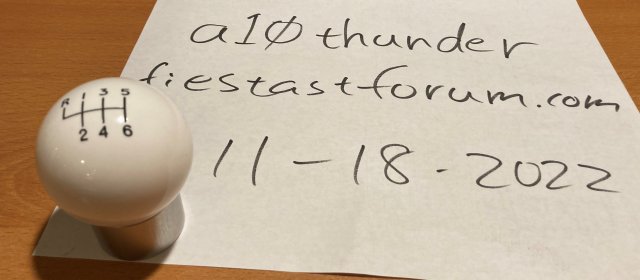 a10 thunder
fiestastforum.com
11-18-2022
R 1 3 5
2 4 6